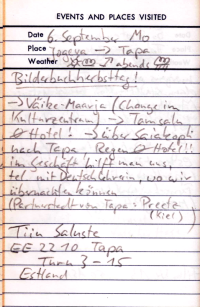 EVENTS AND PLACES VISITED
Date 6. September Mo
Place Jogeva -> Tapa
Weather abends
Bilderbuchherbsttag!
-> Väike-Maarja (Chöre im
Kulturzentrum) -> Tamsalu
Ø Hotel! -> über Saiakopli
nach Tapa Regen Ø Hotel!!
im Geschäft hilft man uns,
tel mit Deutschlehrerin, wo wir
übernachten können
(Partnerstadt von Tapa: Preetz
(Kiel)
Tiin Saluste
EE 2210 Tapa
Turu 3-15
Estland